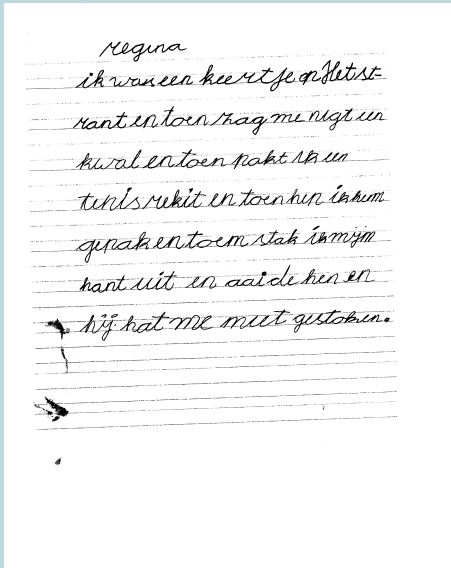 regina
ik was een keertje op Het st-
rant en toen zag me nigt een
kwal en toen pakt ik een
tenis rekit en toen hep ik hem
gepak en toem stak ik mijn
hant uit en aaide hen en
hij hat me niet gestoken.